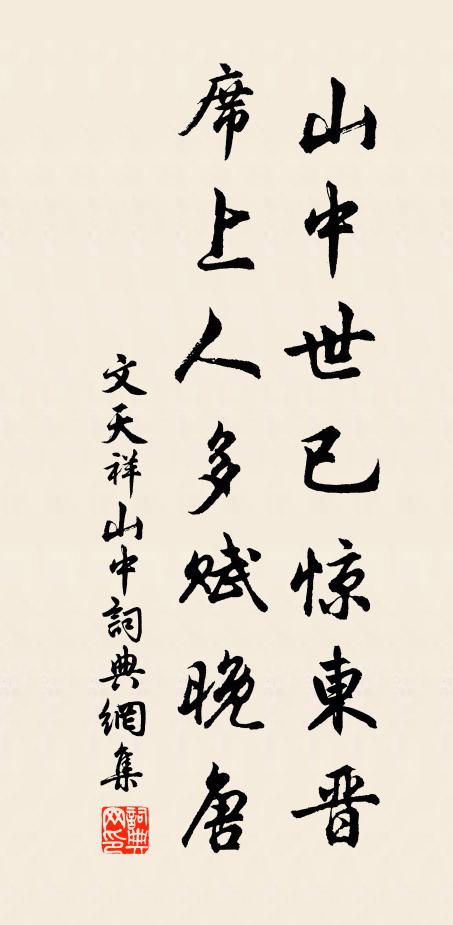 山中世已惊東晋
席上人多赋晚唐
文天祥山中詞典網集
詞典网印